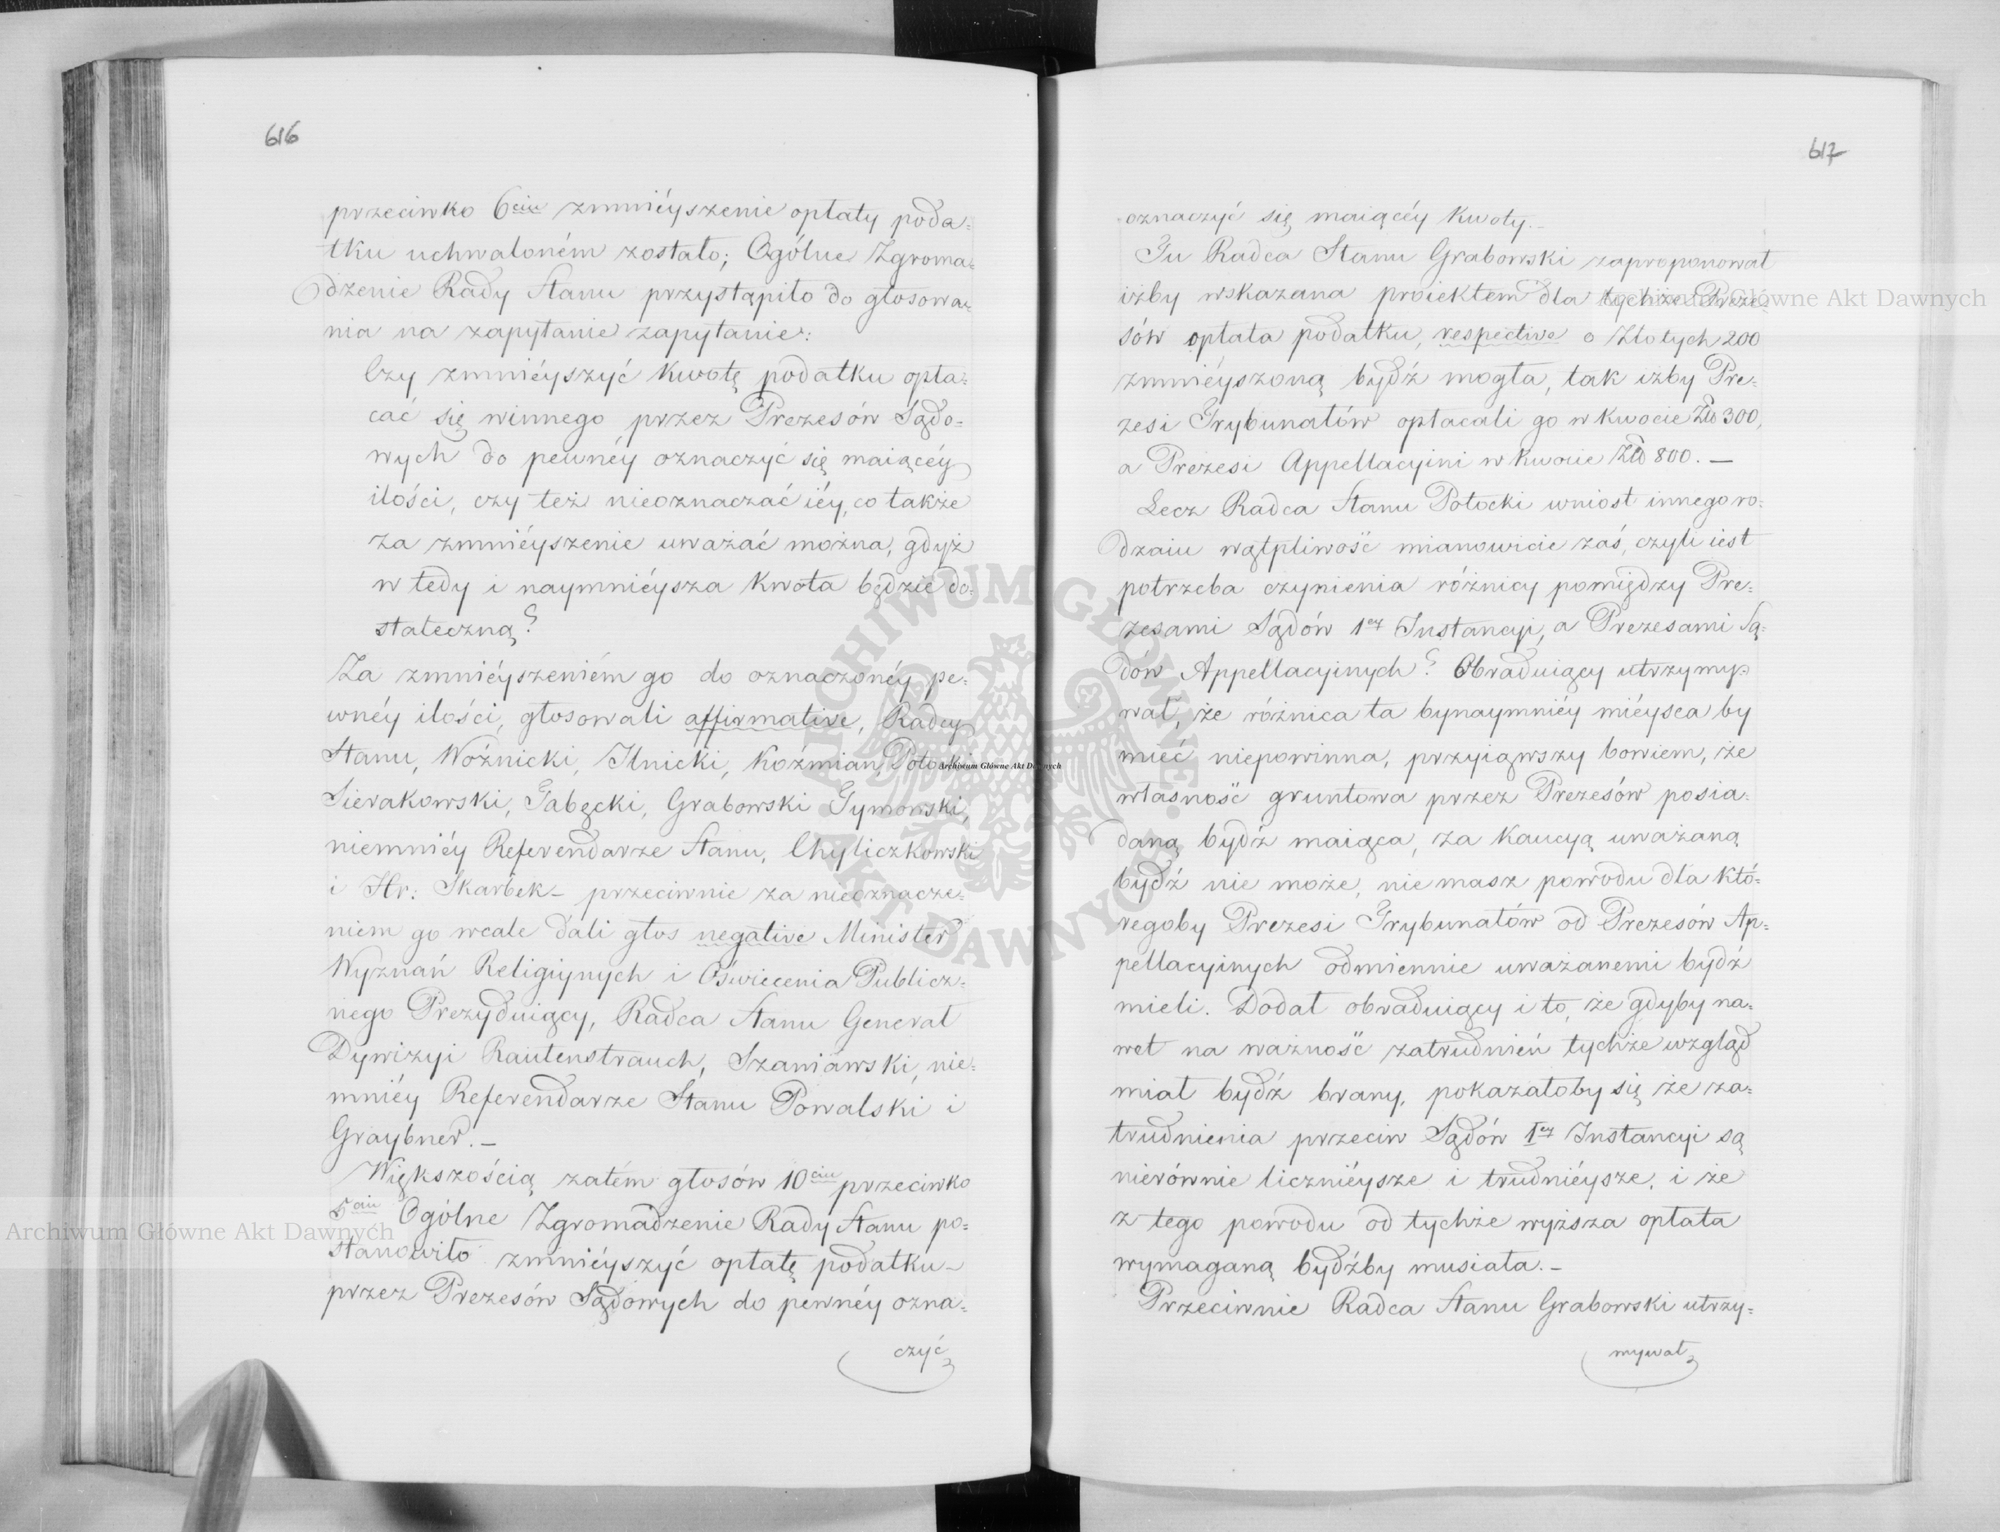 616
przeciwko 6ciu zmniéyszenie opłaty poda=
tku uchwaloném zostało; Ogólne Zgroma=
dzenie Rady Stanu przystąpiło do głosowa=
nia na zapytanie zapytanie:
Czy zmniéyszyć kwotę podatku opła=
cać się winnego przez Prezesów Sądo=
wych do pewnéy oznaczyć się maiącéy
ilości, czy też nieoznaczać iéy, co także
za zmniéyszenie uważać można, gdyż
w tedy i naymniéysza kwota będzie do=
stateczną?
Za zmniéyszeniém go do oznaczonéy pe=
wnéy ilości, głosowali affirmative, Radcy
Stanu, Woźnicki, Ilnicki, Koźmian, Potocki
Sierakowski, Tabęcki, Grabowski Tymowski,
niemniéy Referendarze Stanu, Chyliczkowski
i Hr: Skarbek – przeciwnie za nieoznacze=
niem go wcale dali głos negative Minister
Wyznań Religiynych i Oświecenia Publicz=
nego Prezyduiący, Radca Stanu Generał
Dywizyi Rautenstrauch, Szaniawski, nie=
mniéy Referendarze Stanu Powalski i
Graybner. –
Większością zatém głosów 10ciu przeciwko
5ciu Ogólne Zgromadzenie Rady Stanu po=
stanowiło zmniéyszyć opłatę podatku –
przez Prezesów Sądowych do pewnéy ozna=
czyć
617
oznaczyć się maiącéy kwoty. –
Tu Radca Stanu Grabowski zaproponował
iżby wskazana proiektem dla tychże Preze=
sów opłata podatku, respective o Złotych 200
zmniéyszoną bydź mogła, tak iżby Pre=
zesi Trybunałów opłacali go w kwocie Złp 300,
a Prezesi Appellacyini w kwocie Złp 800. –
Lecz Radca Stanu Potocki wniosł innego ro=
dzaiu wątpliwość mianowicie zaś, czyli iest
potrzeba czynienia różnicy pomiędzy Pre=
zesami Sądów 1ey Instancyi, a Prezesami Są=
dów Appellacyinych? Obraduiący utrzymy=
wał, że różnica ta bynaymniéy mieysca by
mieć niepowinna, przyiąwszy bowiem, że
własność gruntowa przez Prezesów posia=
daną bydź maiąca, za kaucyą uważaną
bydź nie może, nie masz powodu dla któ=
regoby Prezesi Trybunałów od Prezesów Ap=
pellacyinych odmiennie uważanemi bydź
mieli. Dodał obraduiący i to, że gdyby na=
wet na ważność zatrudnień tychże wzgląd
miał bydź brany, pokazałoby się że za=
trudnienia przeciw Sądów 1ey Instancyi są
nierównie licznieysze i trudniéysze, i że
z tego powodu od tychże wyższa opłata
wymaganą bydźby musiała. –
Przeciwnie Radca Stanu Grabowski utrzy=
mywał
Archiwum Główne Akt Dawnych
Archiwum Główne Akt Dawnych
Archiwum Główne Akt Dawnych
ARCHIWUM GŁÓWNE AKT DAWNYCH